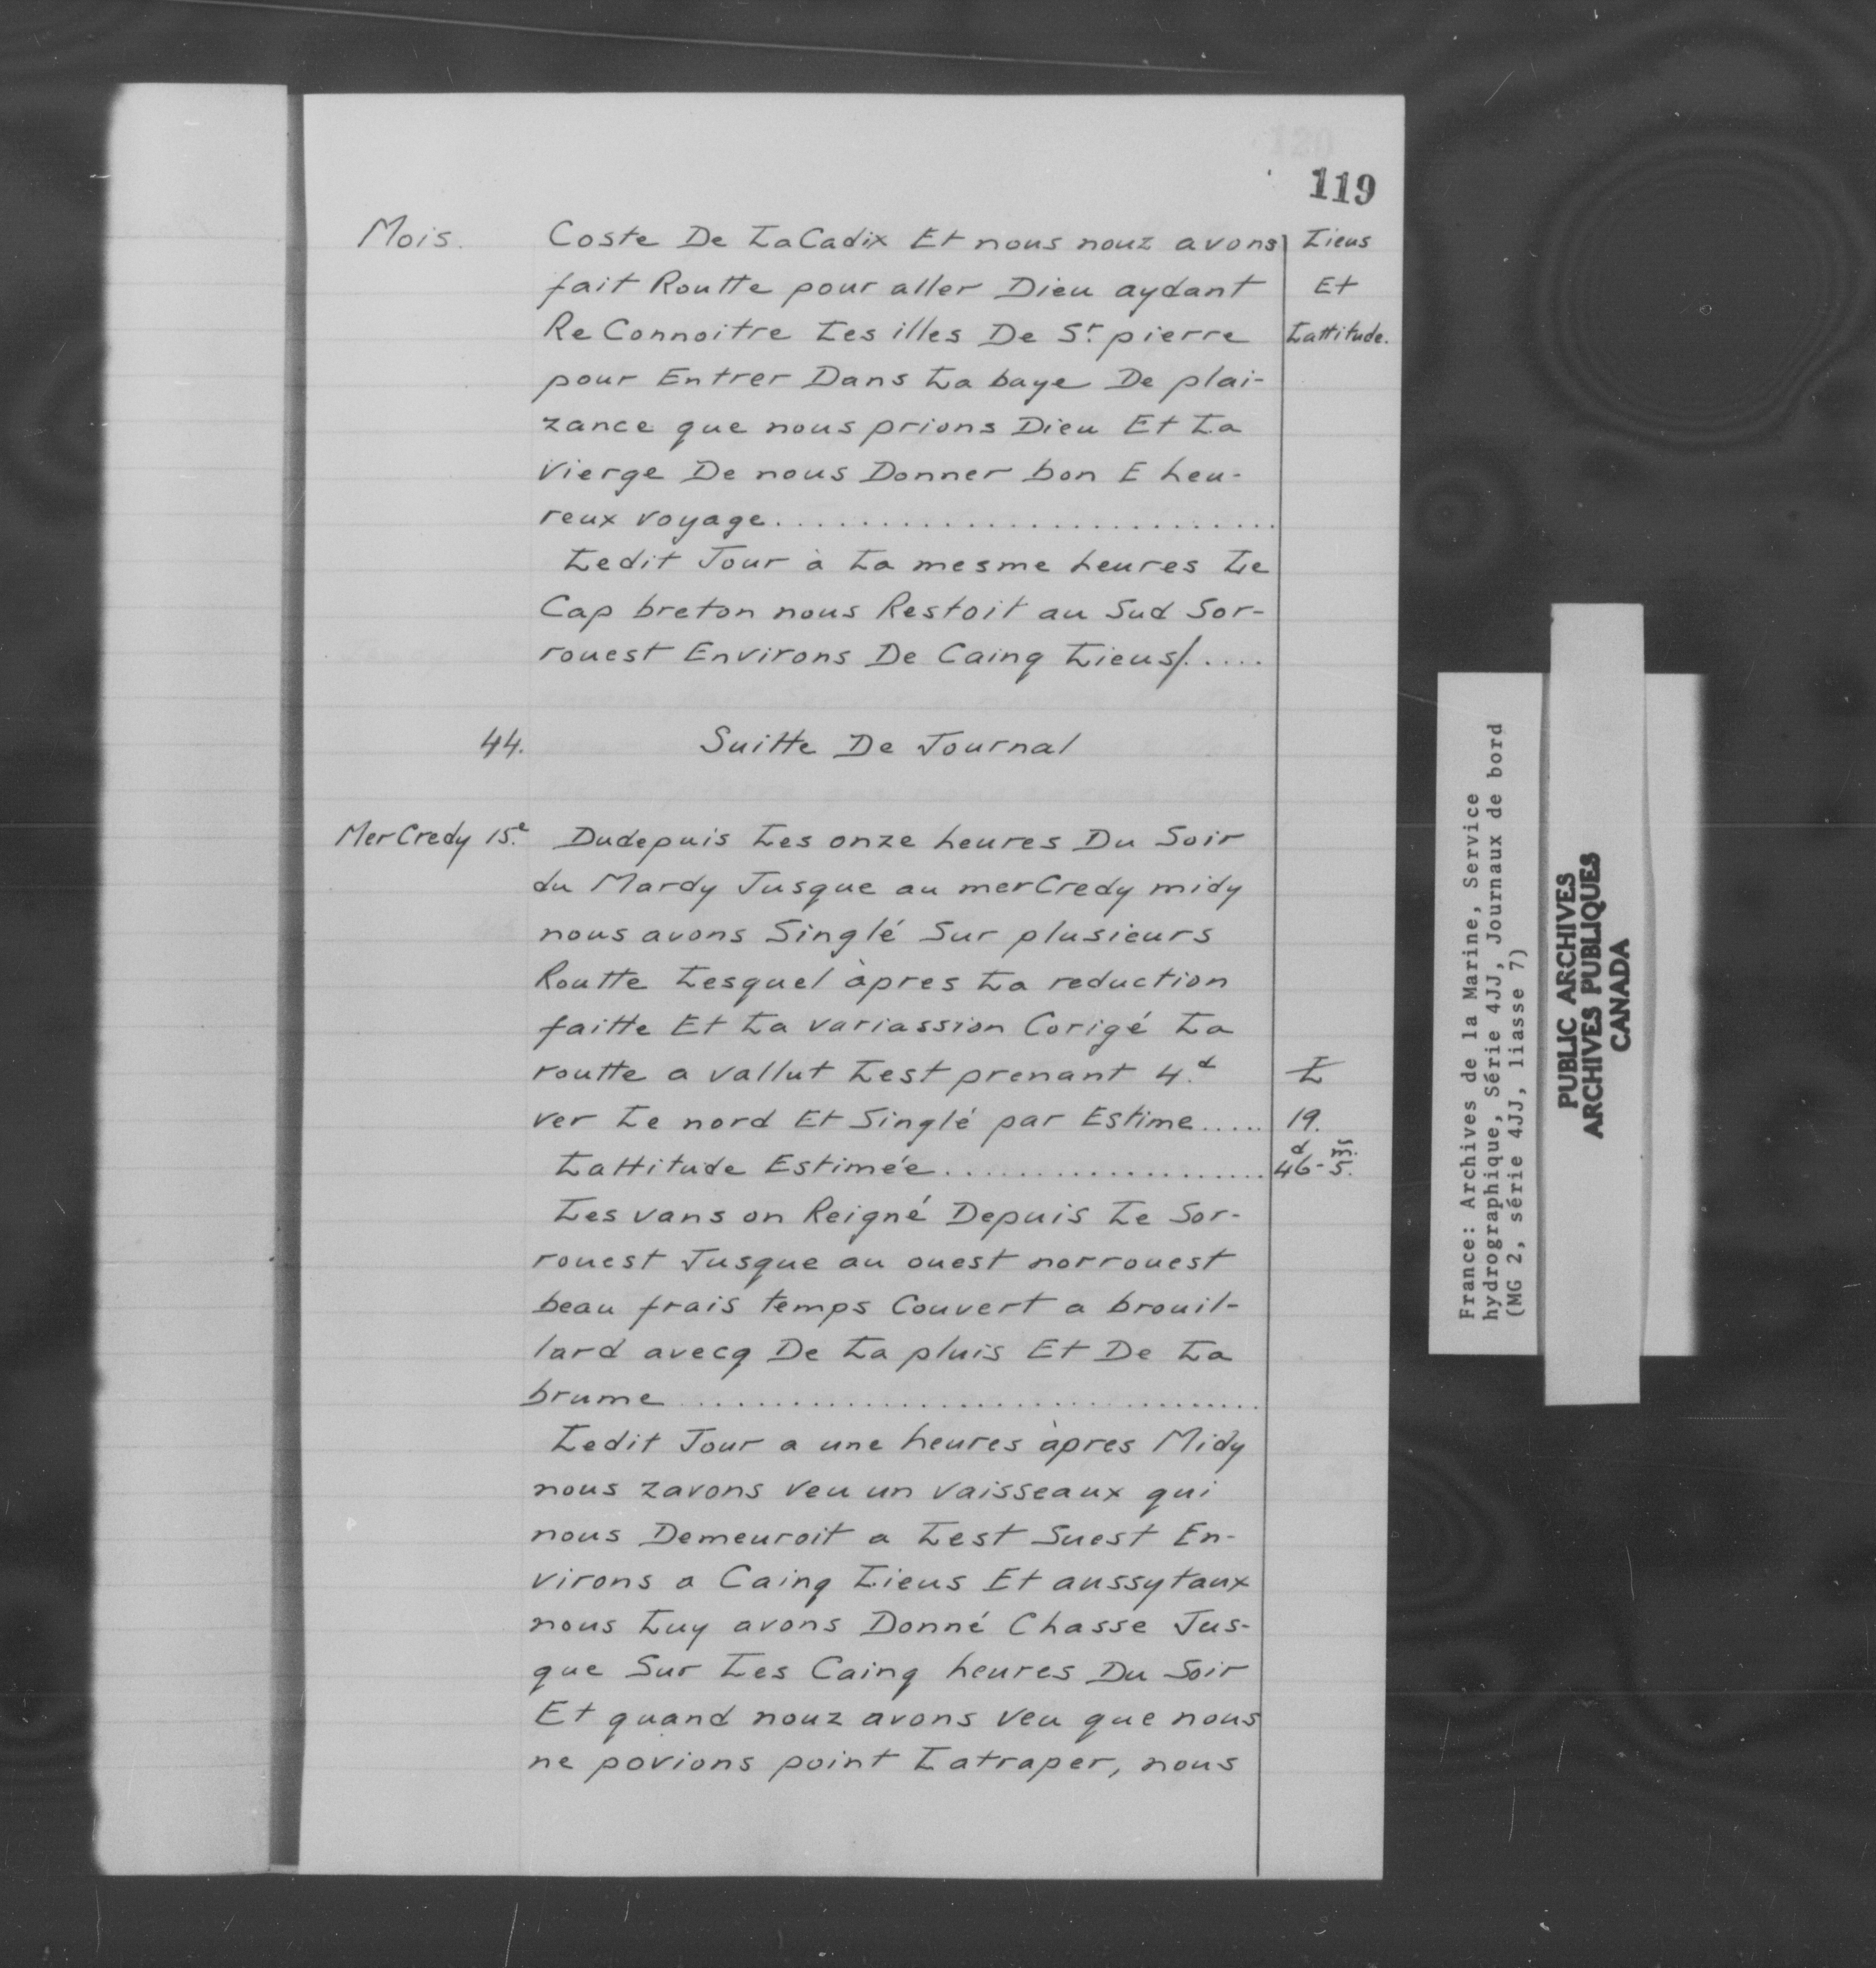 119
Mois. Coste De LaCadix Et nous nouz avons Lieus
fait Routte pour aller Dieu aydant Et
Re Connoitre Les illes De Sr. pierre Lattitude.
pour Entrer Dans La baye De plai-
zance que nous prions Dieu Et La
Vierge De nous Donner bon E heu-
reux voyage..........................
Ledit Jour à La mesme heures Le
Cap breton nous Restoit au Sud Sor-
rouest Environs De Cainq Lieus/.....
44. Suitte De Journal
MerCredy 15.e Dudepuis Les onze heures Du Soir
du Mardy Jusque au merCredy midy
nous avons Singlé Sur plusieurs
Routte Lesquel àpres La reduction
faitte Et La variassion Corigé La
routte a vallut Lest prenant 4.d L
ver Le nord Et Singlé par Estime..... 19.
Lattitude Estimée................... 46d-5m.
Les vans on Reigné Depuis Le Sor-
rouest Jusque au ouest norrouest
beau frais temps Couvert a brouil-
lard avecq De La pluis Et De La
brume.................................
Ledit Jour a une heures àpres Midy
nous zavons veu un vaisseaux qui
nous Demeuroit a Lest Suest En-
virons a Cainq Lieus Et aussytaux
nous Luy avons Donné Chasse Jus-
que Sur Les Cainq heures Du Soir
Et quand nouz avons veu que nous
ne povions point Latraper, nous
France: Archives de la Marine, Service
hydrographique, Série 4JJ, Journaux de bord
(MG 2, série 4JJ, liasse 7)
PUBLIC ARCHIVES
ARCHIVES PUBLIQUES
CANADA